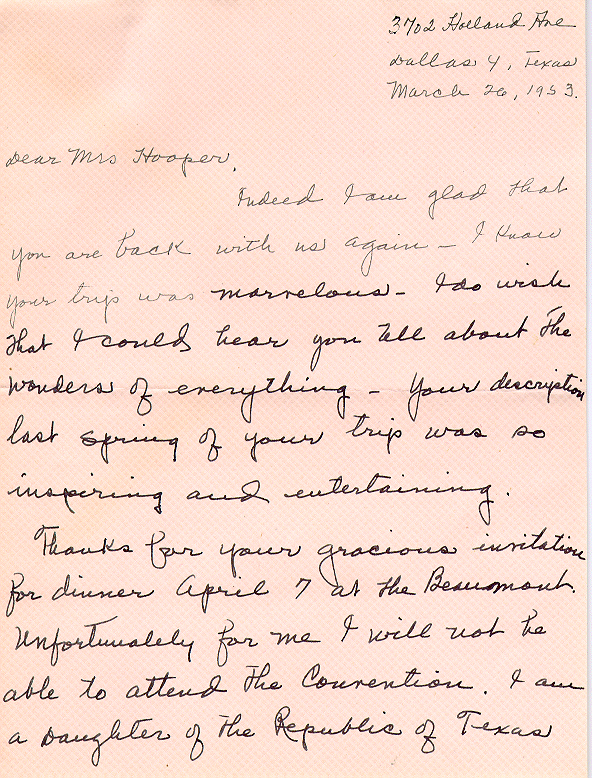 3702 Holland Ave
Dallas 4, Texas
March 26, 1953.
Dear Mrs Hooper,
Indeed I am glad that
you are back with us again – I know
your trip was marvelous – I do wish
that I could hear you tell about the
wonders of everything – Your description
last spring of your trip was so
inspiring and entertaining.
Thanks for your gracious invitation
for dinner April 7 at the Beaumont.
Unfortunately for me I will not be
able to attend the Convention. I am
a Daughter of the Republic of Texas